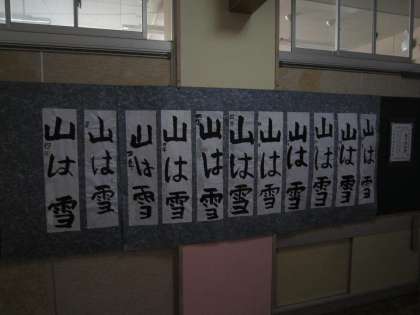 山は雪
山は雪
山は雪
山は雪
山は雪
山は雪
山は雪
山は雪
山は雪
山は雪
山は雪